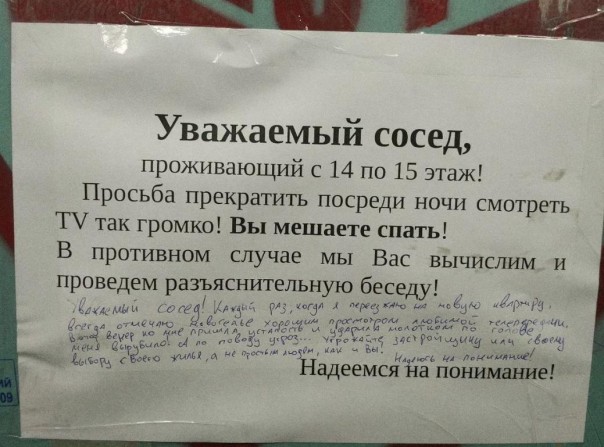 Уважаемый сосед,
проживающий с 14 по 15 этаж!
Просьба прекратить посреди ночи смотреть
TV так громко! Вы мешаете спать!
В противном случае мы Вас вычислим и
проведем разъяснительную беседу!
Уважаемый сосед! Каждый раз, когда я переезжаю на новую квартиру,
всегда отмечаю новоселье хорошим просмотром любимой телепередачи.
вечер ко мне пришла усталость и ударила молотком по голове
меня вырубило! А по поводу угроз... Угрожайте застройщику или своему
выбору своего жилья, а не простым людям, как и Вы! Надеюсь на понимание!
Надеемся на понимание!
ий
09